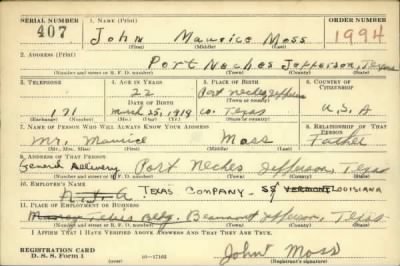 SERIAL NUMBER 1. NAME (Print) ORDER NUMBER
407 John Maurice Moss 1994
(First) (Middle) (Last)
2. ADDRESS (Print)
Port Neches Jefferson, Texas
(Number and street or R. F. D. number) (Town) (County) (State)
3. TELEPHONE 4. AGE IN YEARS 5. PLACE OF BIRTH 6. COUNTRY OF CITIZENSHIP
22 Port Neches Jefferson
DATE OF BIRTH (Town or county)
171 March 25, 1918 Co. Texas U. S. A
(Exchange) (Number) (Mo.) (Day) (Yr.) (State or country)
7. NAME OF PERSON WHO WILL ALWAYS KNOW YOUR ADDRESS 8. RELATIONSHIP OF THAT PERSON
Mr. Maurice Moss Father
(Mr., Mrs., Miss) (First) (Middle) (Last)
9. ADDRESS OF THAT PERSON
General Delivery Port Neches Jefferson, Texas
(Number and street or R. F. D. number) (Town) (County) (State)
10. EMPLOYER'S NAME
TEXAS COMPANY - SS VERMONT LOUISIANA
11. PLACE OF EMPLOYMENT OR BUSINESS
Bldg. Beaumont Jefferson, Texas
(Number and street or R. F. D. number) (Town) (County) (State)
I AFFIRM THAT I HAVE VERIFIED ABOVE ANSWERS AND THAT THEY ARE TRUE.
REGISTRATION CARD
D. S. S. Form 1 16—17105 John Moss
(Registrant's signature)